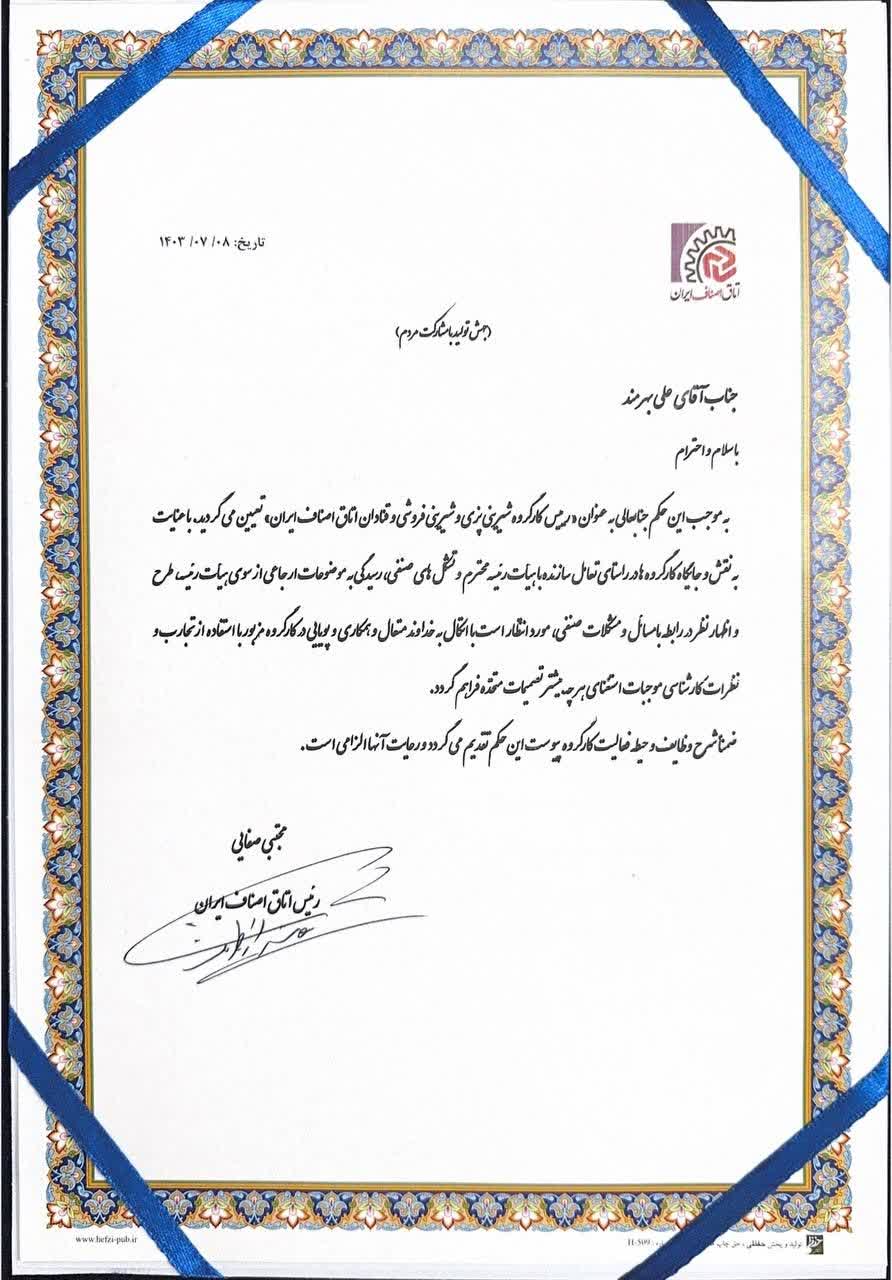 اتاق اصناف ایران
تاریخ: ۱۴۰۳/۰۷/۰۸
(جهش تولید با مشارکت مردم)
جناب آقای علی بهره‌مند
با سلام و احترام
به موجب این حکم جنابعالی به عنوان «رییس کارگروه شیرینی پزی و شیرینی فروشی و قنادان اتاق اصناف ایران» تعیین می گردید. با عنایت
به نقش و جایگاه کارگروه ها در راستای تعامل سازنده با هیات رئیسه محترم و تشکل های صنفی، رسیدگی به موضوعات ارجاعی از سوی هیات رئیسه، طرح
و اظهار نظر در رابطه با مسائل و مشکلات صنفی، مورد انتظار است با اتکال به خداوند متعال و همکاری و پویایی در کارگروه مزبور با استفاده از تجارب و
نظرات کارشناسی موجبات استغنای هر چه بیشتر تصمیمات متخذه فراهم گردد.
ضمنا شرح وظایف و حیطه فعالیت کارگروه پیوست این حکم تقدیم می گردد و رعایت آنها الزامی است.
مجتبی صفایی
رئیس اتاق اصناف ایران
www.hefzi-pub.ir
تولید و پخش حفظی، حق چاپ H-509